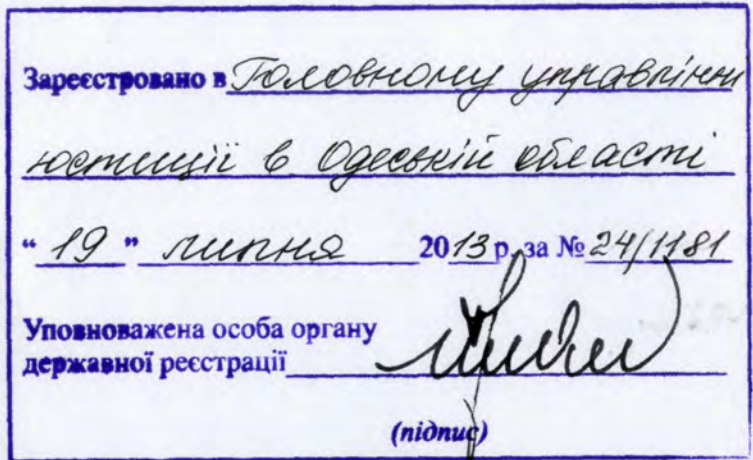 Зареєстровано в Головному управлінні
юстиції в Одеській області
“ 19 ” липня 2013 р. за № 24/1181
Уповноважена особа органу
державної реєстрації
(підпис)